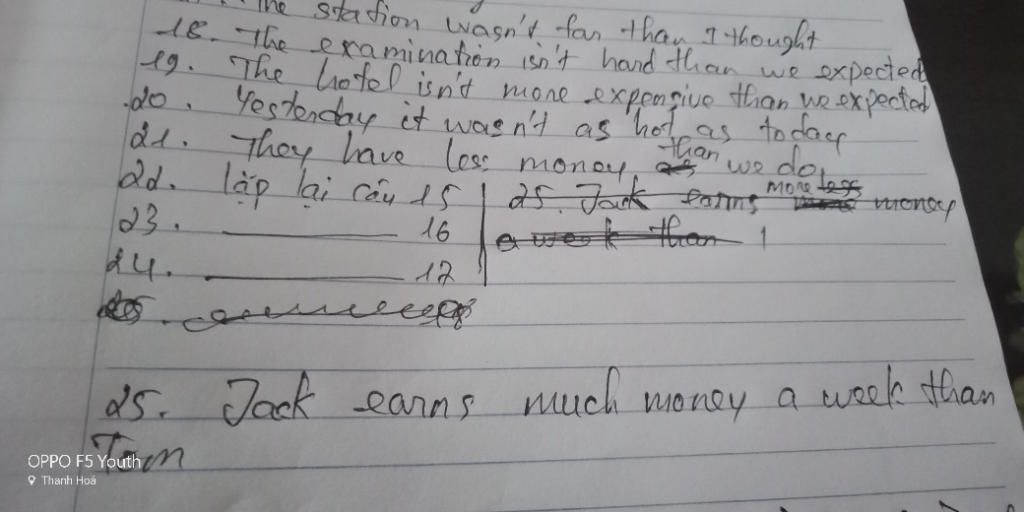 the station wasn't far than I thought
18. The examination isn't hard than we expected
19. The hotel isn't more expensive than we expected
20. Yesterday it wasn't as hot as today
21. They have less money than we do
22. lặp lại câu 15
23. 16
24. 17
25. Jack earns more money
a week than
25. Jack earns much money a week than
Tom
OPPO F5 Youth
Thanh Hoá